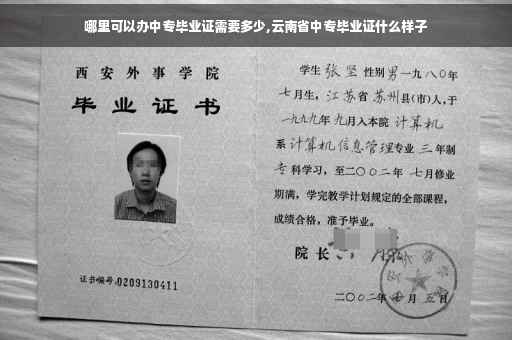 哪里可以办中专毕业证需要多少,云南省中专毕业证什么样子
西安外事学院
毕业证书
证书编号:0209130411
学生 张坚 性别 男 一九八〇年
七月生, 江苏省 苏州县(市)人,于
一九九九年 九月入本院 计算机
系 计算机信息管理专业 三 年制
专科学习,至二〇〇二年 七月修业
期满,学完教学计划规定的全部课程,
成绩合格,准予毕业。
院长
二〇〇二年 七月 五日